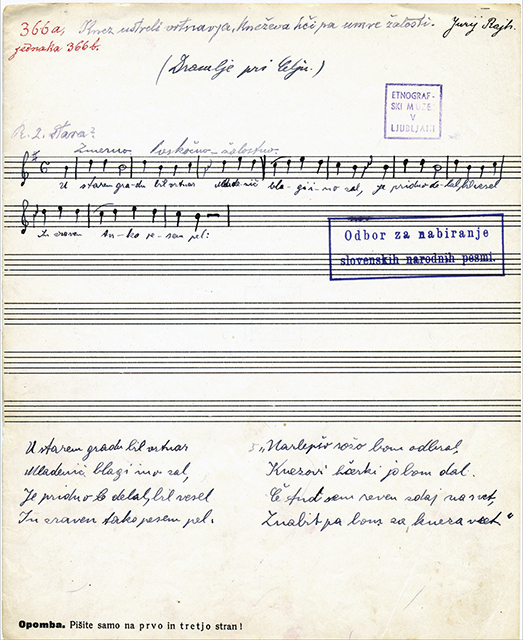 366a, Knez ustreli vrtnarja, kneževa hči pa umre žalosti. Jurij Rajh.
jednaka 366b.
(Dramlje pri Celju.)
ETNOGRAF-
SKI MUZEJ
V
LJUBLJANI
R. 2. Stara?
Zmerno. Poskočno-žalostno.
U starem gradu bil vrtnar Mladenič bla-gi i-no zal, je pridno de-lal, bil vesel
In zraven ta-ko pe-sem pel:
Odbor za nabiranje
slovenskih narodnih pesmi.
U starem gradu bil vrtnar
Mladenič blagi ino zal,
Je pridno delal, bil vesel
In zraven tako pesem pel:
5 „Narlepšo rožo bom odbral,
Knezovi hčerki jo bom dal.
Če tud sem reven zdaj na svet,
Znabit pa bom za kneza vzet“
Opomba. Pišite samo na prvo in tretjo stran!